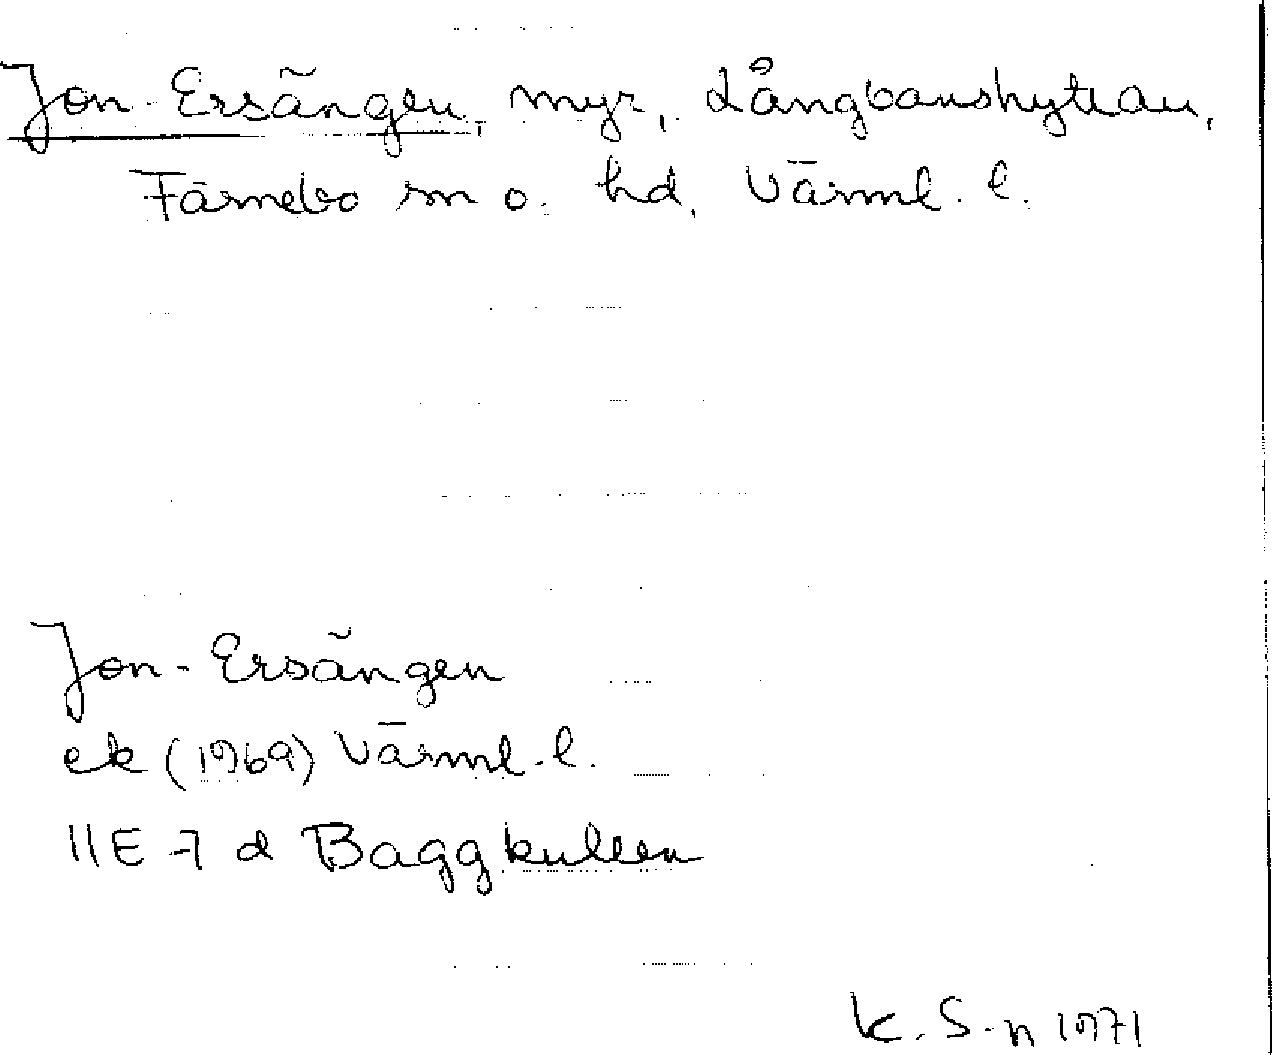 Jon-Ersängen, myr, Långbanshyttan,
Färnebo sn o. hd, Värml. l.
Jon-Ersängen
ek (1969) Värml. l.
11E 7 d Baggkullen
K. S-n 1971